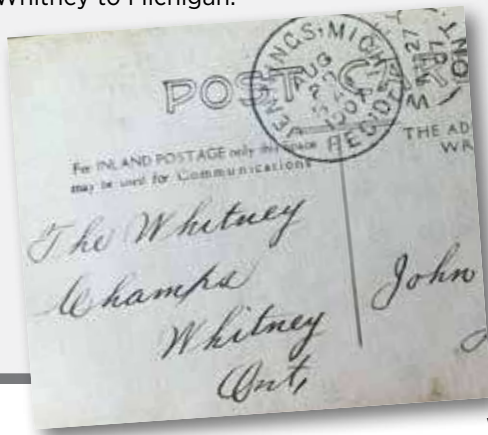 Whitney to Michigan.
POST CARD
JENNINGS, MICH.
AUG
1907
REC'D
27
07
ONT
For INLAND POSTAGE only this space
may be used for Communications
THE AD
WR
The Whitney
Champs
Whitney
Ont,
John